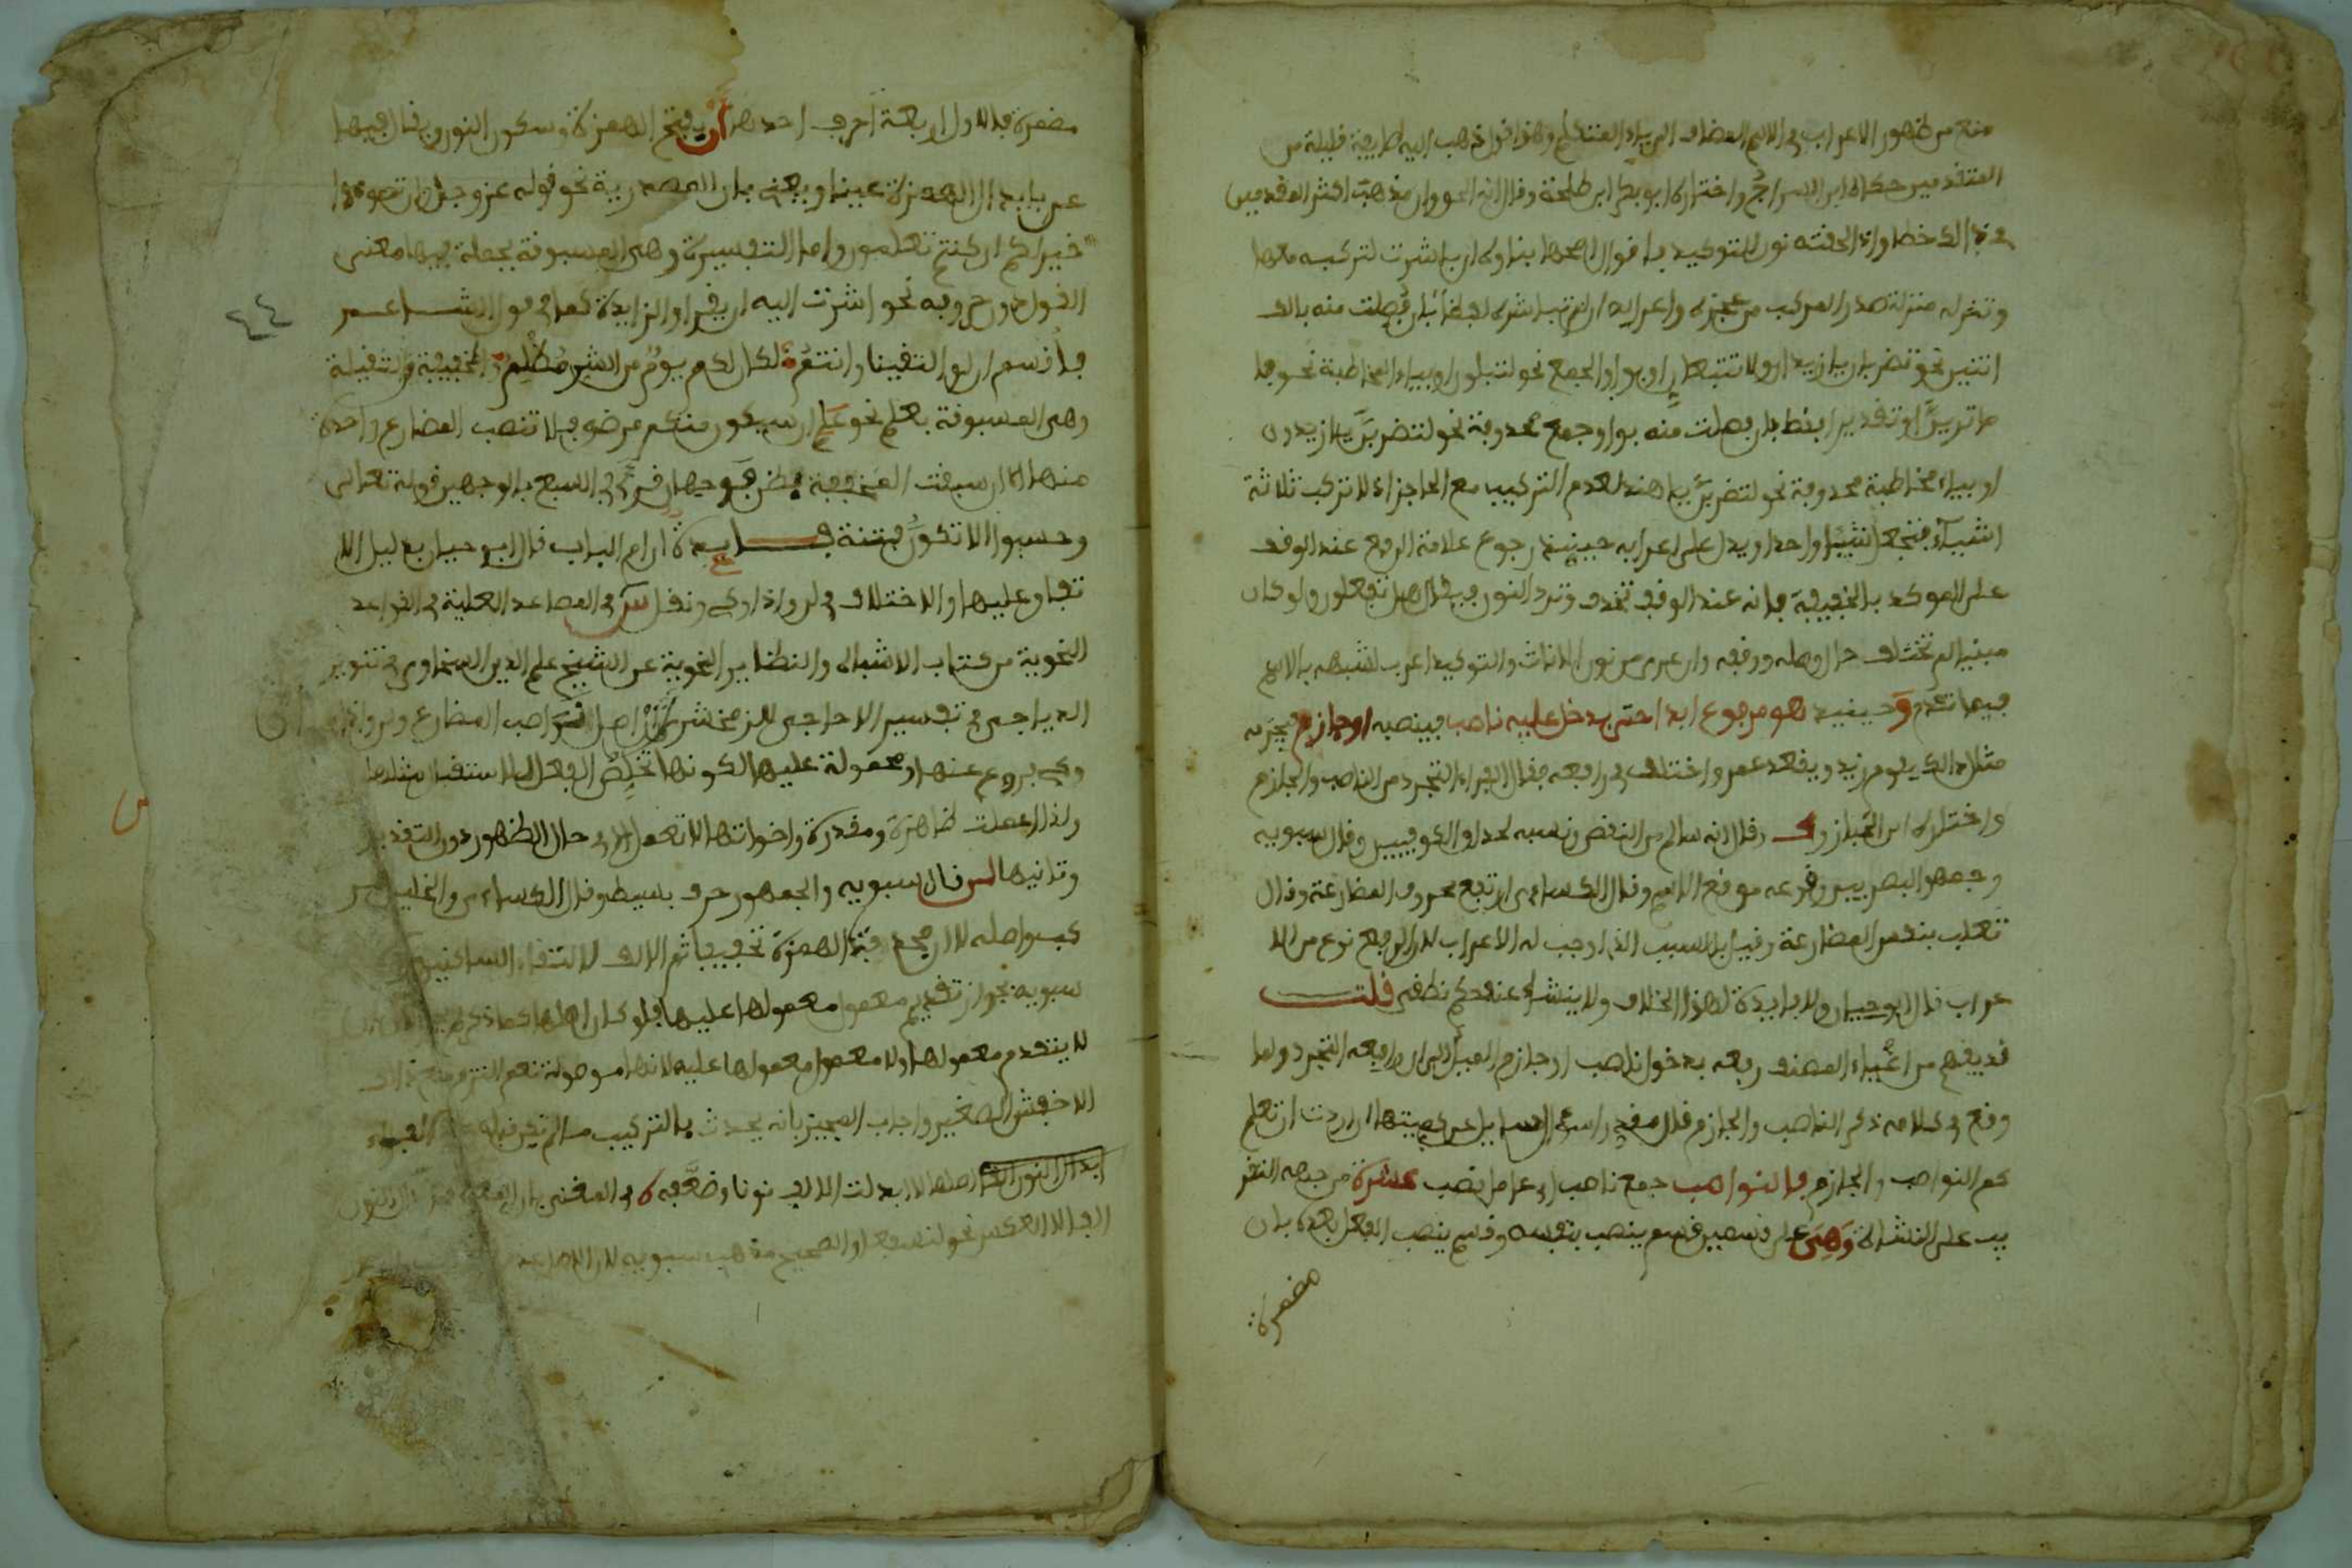 منع من ظهور الاعراب في الاسم المضاف الى ياء المتكلم وهذا قول ذهب اليه طايفة قليلة من
المتقدمين حكاه ابن السراج واختاره ابو بكر ابن طلحة وقال انه الحق وان مذهب اكثر المتقدمين
خطا واذا لحقته نون للتوكيد باقوال اصحها بناوه ان باشرت لتركبه معها
وتنزله منزلة صدر المركب من عجزه واعرابه ان لم تباشره لفظا بان فصلت منه بالف
اثنين نحو تضربان يا زيدان ولا تتبعان او بواو الجمع نحو لتبلون او بياء المخاطبة نحو فاما
ترين او تقديرا فقط بان فصلت منه بواو جمع محذوفة نحو لتضربن يا زيدون
او بياء مخاطبة محذوفة نحو لتضربن يا هند لعدم التركيب مع الحاجز اذ لا تركب ثلاثة
اشياء فتجعل شيئا واحدا ويدل على اعرابه حينيذ رجوع علامة الرفع عند الوقف
على الموكد بالخفيفة فانه عند الوقف تحذف وترد النون فيقال هل تفعلون ولو كان
مبنيا لم تختلف حال وصله ووقفه وان عري من نون الاناث والتوكيد اعرب لشبهه بالاسم
فيما تقدم وحينيذ هو مرفوع ابدا حتى يدخل عليه ناصب فينصبه او جازم فيجزمه
مثال ذلك يقوم زيد ويقعد عمر واختلف في رافعه فقال الفراء التجرد من الناصب والجازم
واختاره ابن الخباز وقال انه سالم من النقض ونسبه لحذاق الكوفيين وقال سيبويه
وجمهور البصريين وقوعه موقع الاسم وقال الكساءي ارتفع بحروف المضارعة وقال
ثعلب بنفس المضارعة وقيل بالسبب الذي اوجب له الاعراب لان الرفع نوع من الا
عراب قال ابو حيان ولا فايدة لهذا الخلاف ولا ينشا عنه حكم نطقي قلت
قد يفهم من اغياء المصنف رفعه بدخول ناصب او جازم الميل الى ان رافعه التجرد ولما
وقع في كلامه ذكر الناصب والجازم قال مقدرا سوال السايل عن كميتها ان اردت ان تعلم
كم النواصب والجازم فالنواصب جمع ناصب او عامل نصب عشرة من جهة التقر
يب على النشاة وهي على قسمين قسم ينصب بنفسه وقسم ينصب الفعل بعده بان
مضمرة
مضمرة فالاول اربعة احرف احدها ان بفتح الهمزة وسكون النون ويقال فيها
عن بابدال الهمزة عينا ويعنى بان المصدرية نحو قوله عز وجل وان تصوموا
خير لكم ان كنتم تعلمون واما التفسيرية وهي المسبوقة بجملة فيها معنى
القول دون حروفه نحو اشرت اليه ان يفر او الزايدة كما في قول الشاعر
فاقسم ان لو التقينا وانتم لكان لكم يوم من الشر مظلم والمخففة من الثقيلة
وهي المسبوقة بعلم نحو علم ان سيكون منكم مرضى فلا تنصب المضارع واحدة
منها الا ان سبقت المخففة بظن فوجهان قرئ في السبع بالوجهين قوله تعالى
وحسبوا الا تكون فتنة فايدة ان ام الباب قال ابو حيان بدليل الا
تفاق عليها والاختلاف في لن واذا وكي ونقل س في المصاعد العلية في القواعد
النحوية من كتاب الاشباه والنظاير النحوية عن الشيخ علم الدين السخاوي في تنوير
الدياجي في تفسير الاحاجي للزمخشري ان اصل نواصب المضارع ولن واذا
وكي فروع عنها ومحمولة عليها لكونها تخلص الفعل للاستقبال مثلها
ولذا عملت ظاهرة ومقدرة واخواتها لا تعمل الا في حال الظهور دون التقدير
وثانيها لن قال سيبويه والجمهور حرف بسيط وقال الكساءي والخليل مر
كب واصله لا ان فحذفت الهمزة تخفيفا ثم الالف لالتقاء الساكنين
سيبويه بجواز تقديم معمول معمولها عليها فلو كان اصلها كما ذكر
لا يتقدم معمولها ولا معمول معمولها عليه لانها موصولة نعم التزم منع ذلك
الاخفش الصغير واجاب المجيز بانه يحدث بالتركيب ما لم يكن قبله الفراء
ابدال النون الفا اصلها لا ابدلت الالف نونا وضعفه في المغني بان المعروف ابدال النون
الفا لا العكس نحو لنسفعا والصحيح مذهب سيبويه لان الاصل عدم
٤٤